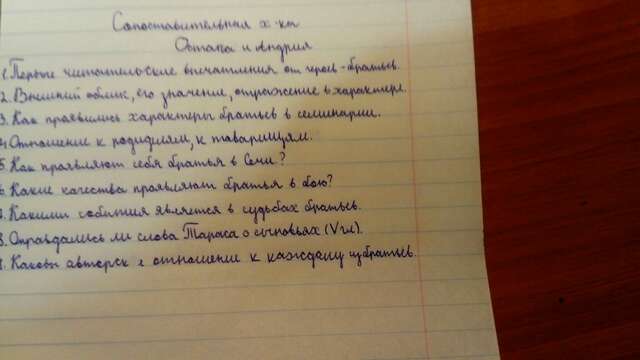 Сопоставительная х-ка
Остапа и Андрия
1. Первые читательские впечатления от героев-братьев.
2. Внешний облик, его значение, отражение в характере.
3. Как проявились характеры братьев в семинарии.
4. Отношение к родителям, к товарищам.
5. Как проявляют себя братья в Сечи?
6. Какие качества проявляют братья в бою?
7. Какими события является в судьбах братьев.
8. Оправдались ли слова Тараса о сыновьях (V гл).
9. Каковы авторск е отношение к каждому из братьев.